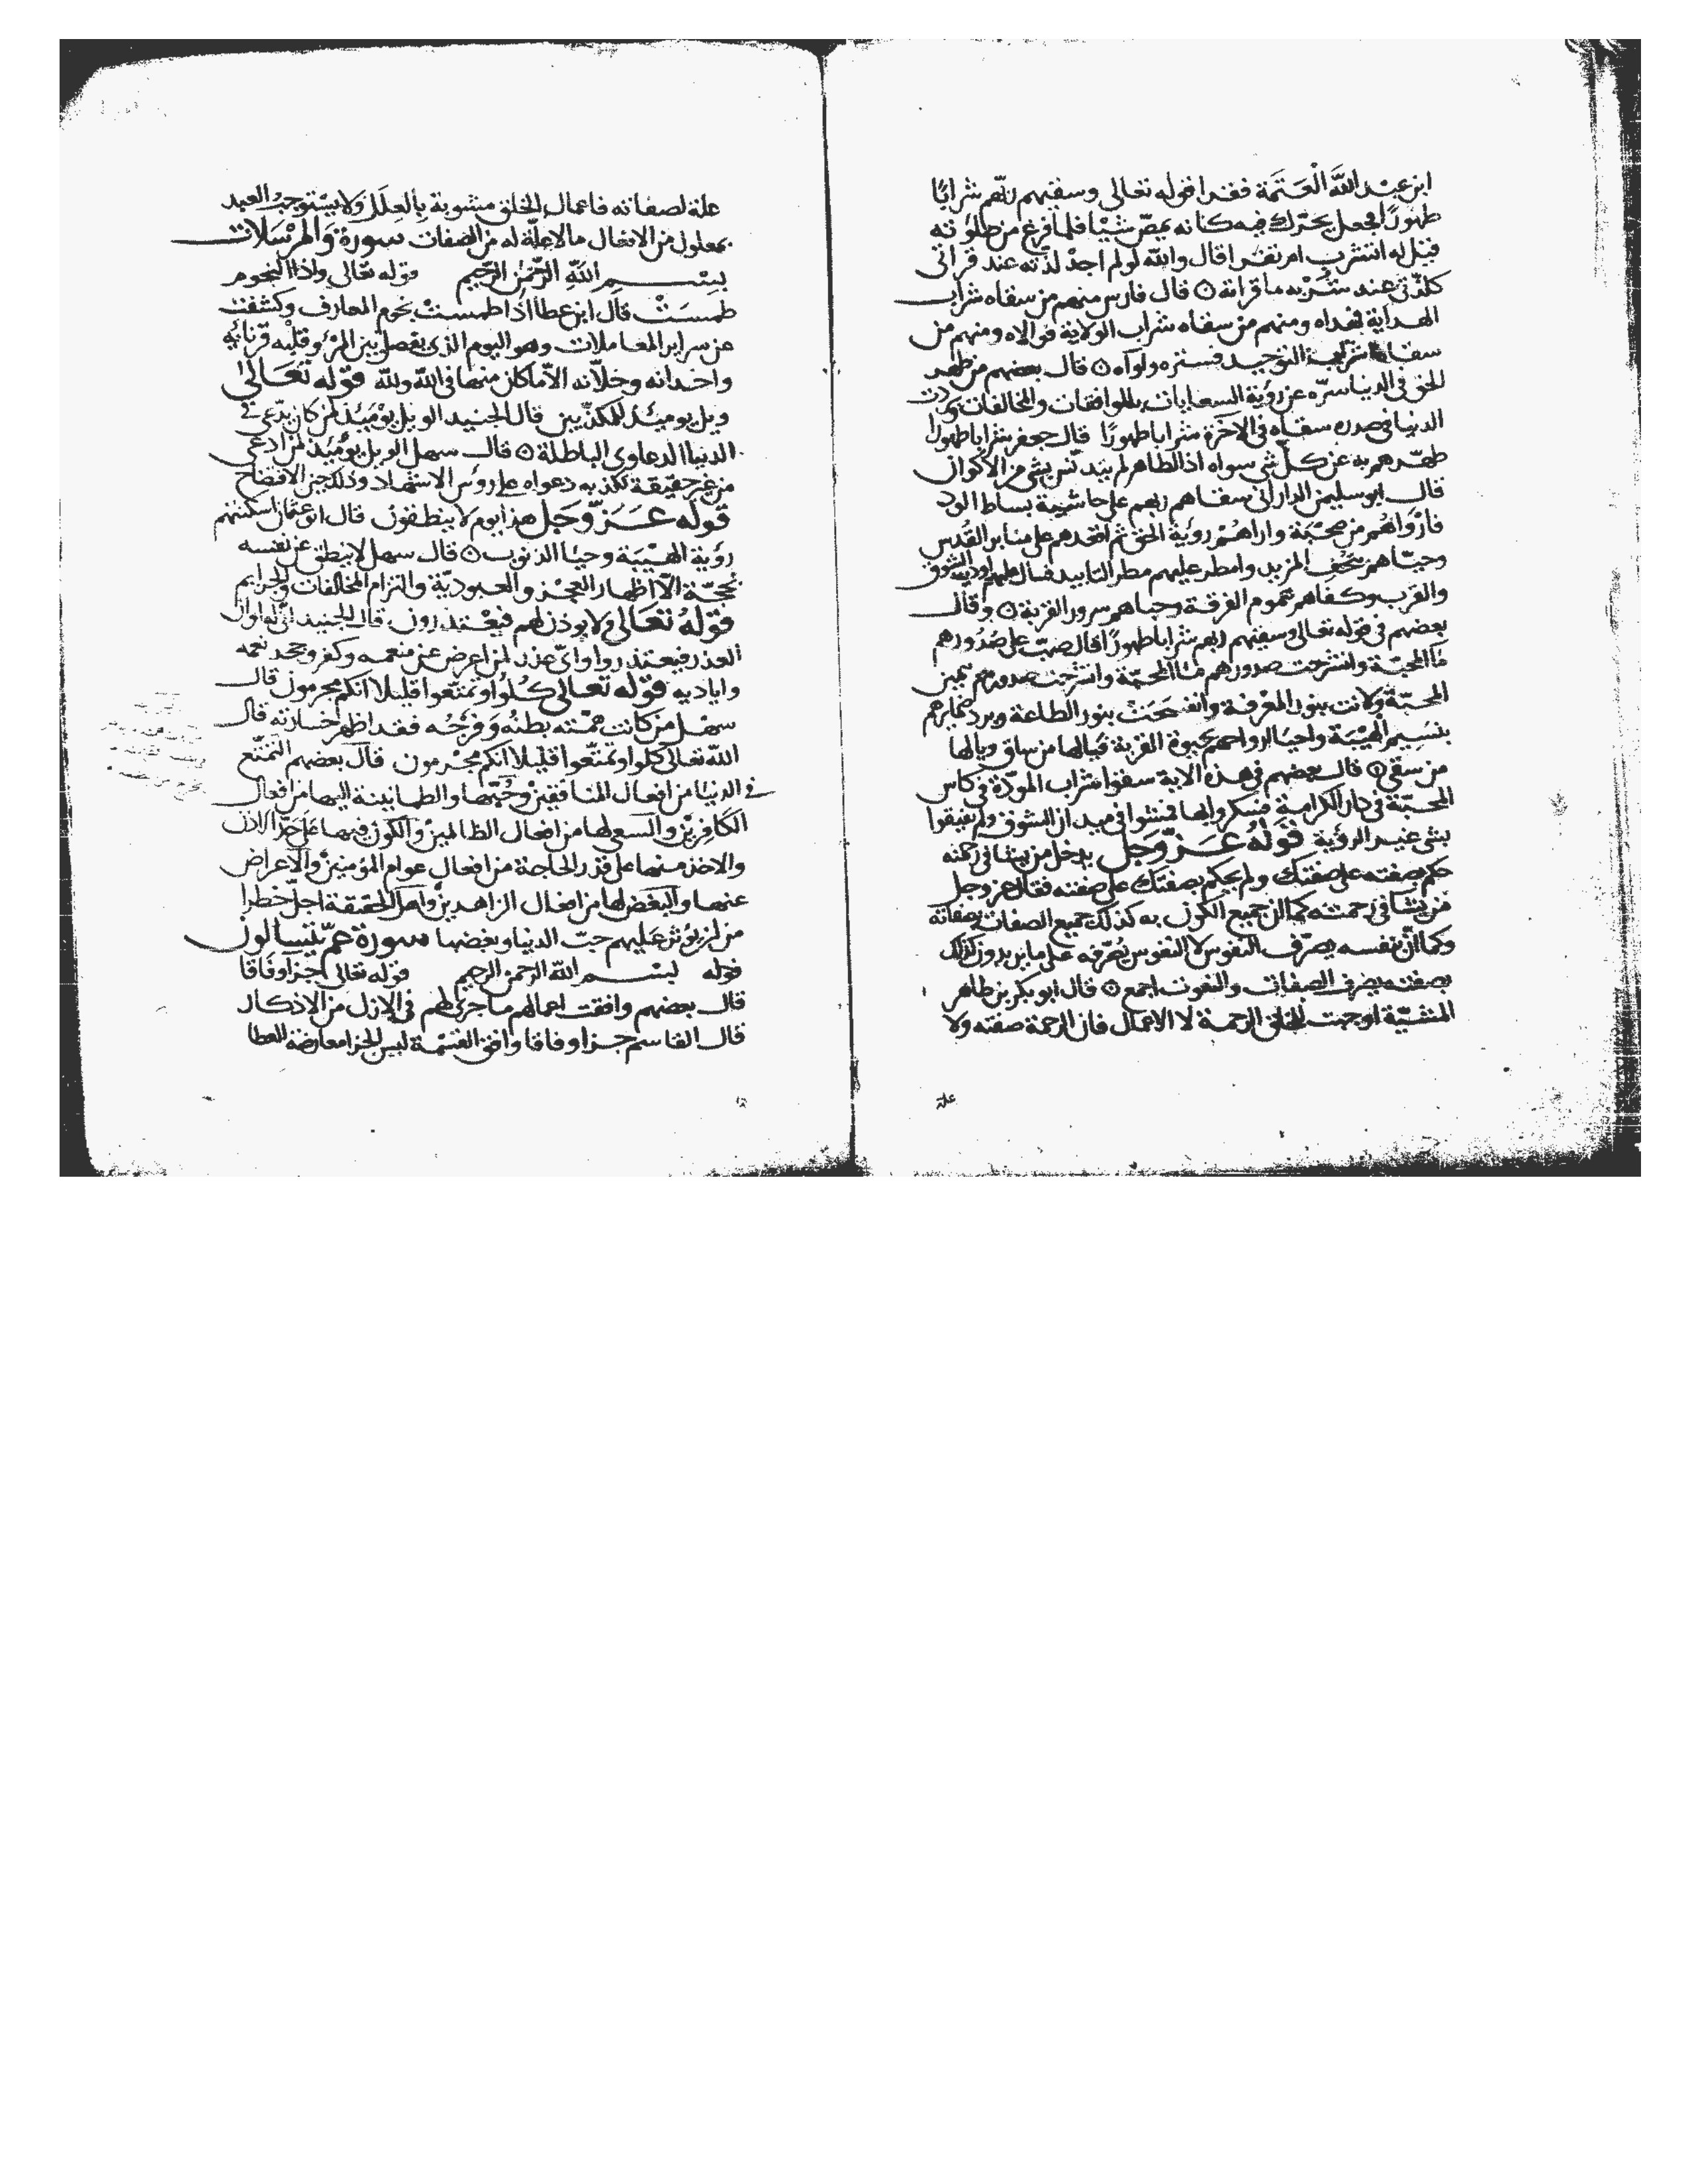 ابن عبد الله العتمة فقرا قوله تعالى وسقيهم ربهم شرابًا
طهورًا فجعل يحرك فيه كانه يمصّ شيئا فلما فرغ من صلوته
قيل له اتشرب ام تقرا قال والله لو لم اجد لذّته عند قراتى
كلذّتى عند شربه ما قراته ۞ قال فارس منهم من سقاه شراب
الهداية فهداه ومنهم من سقاه شراب الولاية فوالاه ومنهم من
سقاه شراب التوحيد فستره ولواه ۞ قال بعضهم من طهر
الحق فى الدنيا سرّه عن رؤية السعايات بالموافقات والمخالفات
الدنيا فى صدره سقاه فى الاخرة شرابا طهورًا قال جعفر شرابا طهورا
طهّرهم به عن كلّ شى سواه اذ لا طاهر لم يتدنّس بشى من الاكوان
قال ابو سليمن الدارانى سقاهم ربهم على حاشية بساط الود
فارواهم من صحبة واراهم رؤية الحق ثم اقعدهم على منابر القدس
وحيّاهم بتحف المزيد وامطر عليهم مطر التاييد فسال عليهم اودية الشوق
والقرب وكفاهم هموم الفرقة وحباهم سرور القربة ۞ وقال
بعضهم فى قوله تعالى وسقيهم ربهم شرابا طهورًا قال صبّ على صدورهم
ما المحبّة وانشرحت صدورهم ما المحبّة وانشرحت صدورهم
المحبّة ولانت بنور المعرفة وانفسحت بنور الطاعة وبرد ضمايرهم
بنسيم الهيبة واحيا ارواحهم بحيوة القربة فيالها من ساق ويالها
من سقى ۞ قال بعضهم فى هذه الاية سقوا شراب المودّة فى كاس
المحبّة فى دار الكرامة فسكروا بها فمشوا فى ميدان الشوق ولم يفيقوا
بشى غير الرؤية قوله عزّ وجل يدخل من يشا فى رحمته
حكم بصفته على صفتك ولم يحكم بصفتك على صفته فقال عز وجل
من يشا فى رحمته كما ان جميع الكون به كذلك جميع الصفات بصفاته
وكما انّ بنفسه يصرّف النفوس لا النفوس تصرّفه على ما يريدون كذلك
بصفته يصرف الصفات والنعوت اجمع ۞ قال ابو بكر بن طاهر
المشيّة اوجبت للخلق الرحمة لا الاعمال فان الرحمة صفته ولا
علة
علة لصفاته فاعمال الخلق مشوبة بالعلل ولا يستوجب العبد
بمعلول من الافعال مالا علّة له من الصفات سورة والمرسلات
بسم الله الرحمن الرحيم قوله تعالى واذا النجوم
طمست قال ابن عطا اذا طمست نجوم المعارف وكشفت
عن سراير المعاملات وهو اليوم الذى يفصل بين المرؤ وقلبه قرنائه
واخدانه وخلّانه الّا ما كان منها فى الله ولله قوله تعالى
ويل يوميذ للمكذبين قال الجنيد الويل يوميذ لمن كان يدّعى فى
الدنيا الدعاوى الباطلة ۞ قال سهل الويل يوميذ لمن ادعى
من غير حقيقة تكذبه دعواه على رؤس الاشهاد وذلك حين الافتضاح
قوله عزّ وجل هذا يوم لا ينطقون قال ابو عثمان اسكتتهم
رؤية الهيبة وحيا الذنوب ۞ قال سهل لا ينطق عن نفسه
بحجّة الّا اظهار العجز والعبوديّة والتزام المخالفات والجرايم
قوله تعالى ولا يوذن لهم فيعتذرون قال الجنيد انّى له اوان
العذر فيعتذروا واىّ عذر لمن اعرض عن منعمه وكفر وجحد نعمه
واياديه قوله تعالى كلوا وتمتعوا قليلا انكم مجرمون قال
سهل من كانت همّته بطنه وفرجه فقد اظهر خسارته قال
الله تعالى كلوا وتمتّعوا قليلا انكم مجرمون قال بعضهم التمتّع
فى الدنيا من افعال المنافقين وحبّها والطمانينة اليها من افعال
الكافرين والسعى لها من افعال الظالمين والكون فيها على حدّ الاذن
والاخذ منها على قدر الحاجة من افعال عوام المؤمنين والاعراض
عنها والبغض لها من افعال الزاهدين واهل الحقيقة اجلّ خطرا
من ان يؤثر عليهم حبّ الدنيا وبغضها سورة عمّ يتسالون
قوله بسم الله الرحمن الرحيم قوله تعالى جزا وفاقا
قال بعضهم وافقت اعمالهم ما جرى لهم فى الازل من الاذكار
قال القاسم جزا وفاقا وافق القسمة ليس الجزا معارضة للعطا